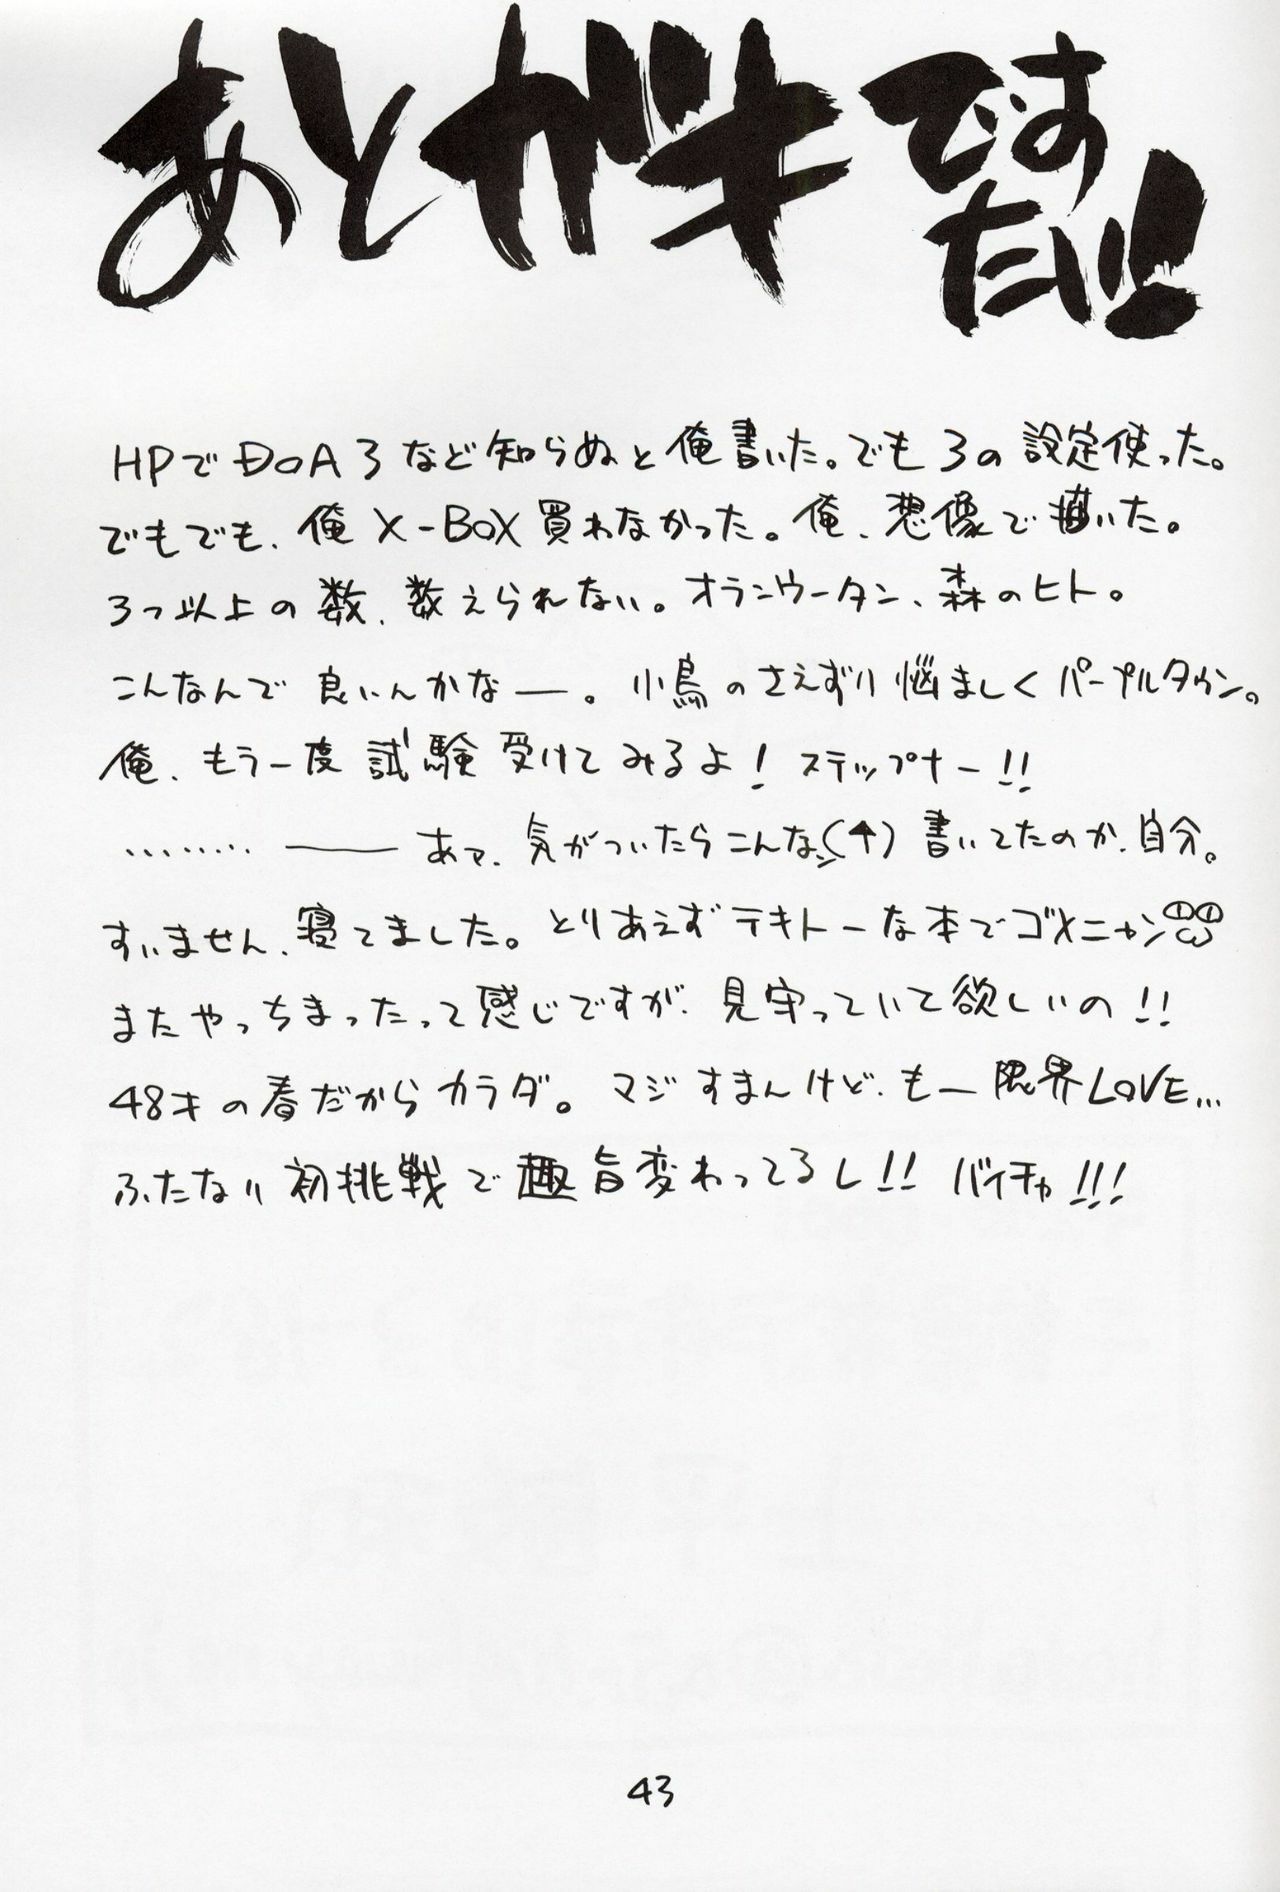 あとガキですたい!!
HPでDOA3など知らぬと俺書いた。でも3の設定使った。
でもでも、俺X-BOX買わなかった。俺、想像で描いた。
3つ以上の数、数えられない。オランウータン、森のヒト。
こんなんで良いんかなー。小鳥のさえずり悩ましくパープルタウン。
俺、もう一度試験受けてみるよ!ステップナー!!
………―――あァ、気がついたらこんな(↑)書いてたのか、自分。
すいません、寝てました。とりあえずテキトーな本でゴメニャン
またやっちまったって感じですが、見守っていて欲しいの!!
48才の春だからカラダ。マジすまんけど、もー限界LOVE…
ふたなり初挑戦で趣旨変わってるし!!バイチャ!!!
43